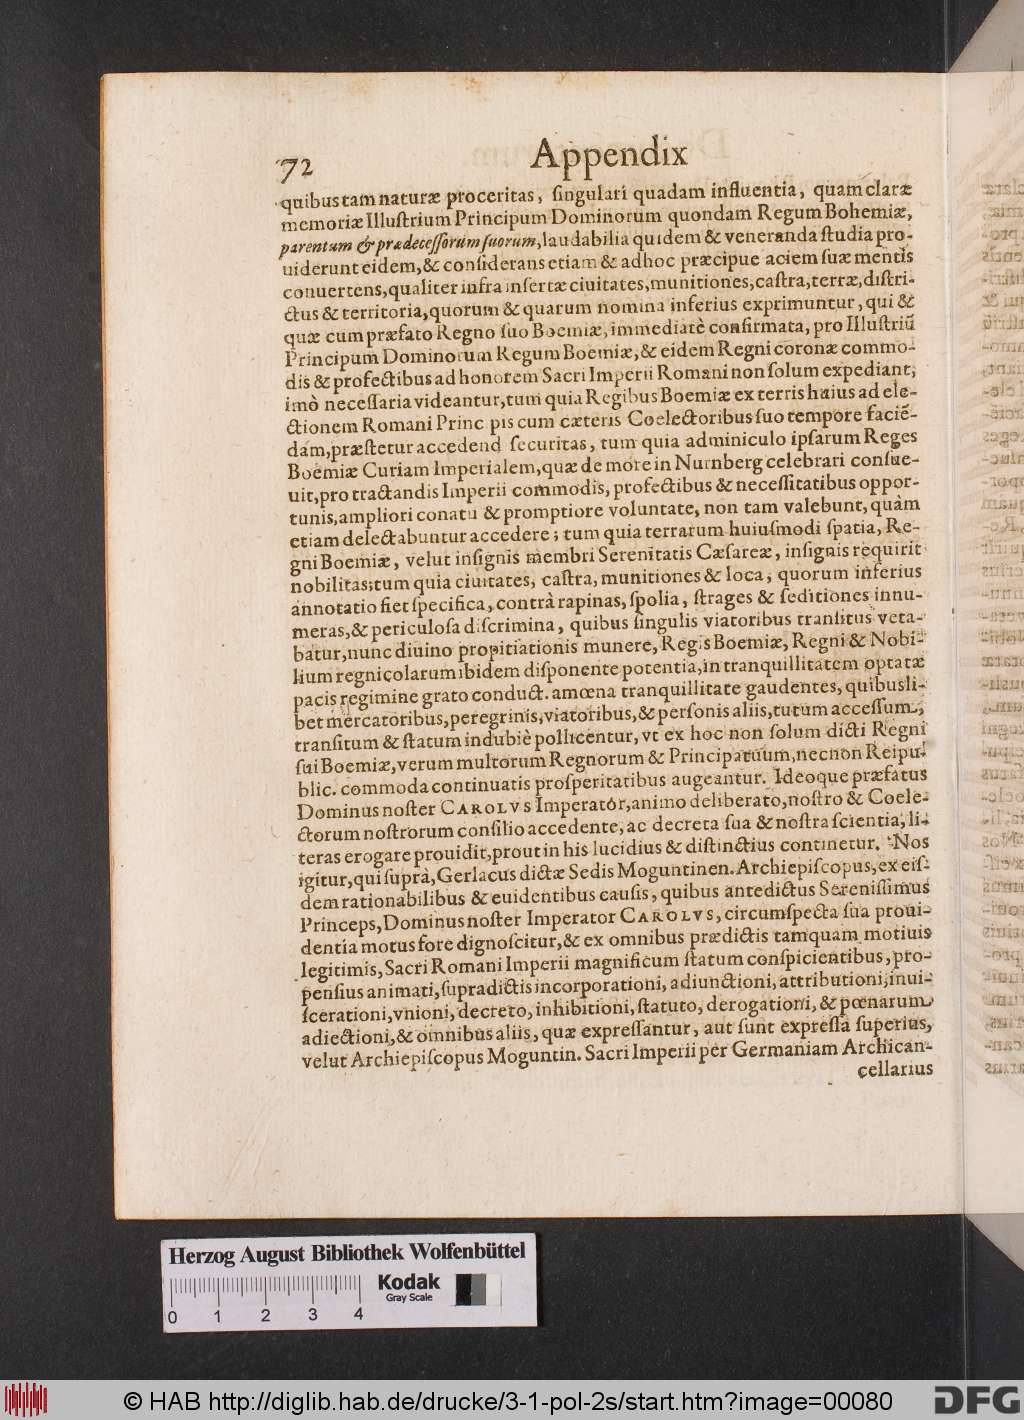 72 Appendix
quibus tam naturæ proceritas, ſingulari quadam influentia, quam claræ
memoriæ Illuſtrium Principum Dominorum quondam Regum Bohemiæ,
parentum & prædeceſſorum ſuorum, laudabilia quidem & veneranda ſtudia pro-
uiderunt eidem, & conſiderans etiam & adhoc præcipue aciem ſuæ mentis
conuertens, qualiter infra inſertæ ciuitates, munitiones, caſtra, terræ, diſtri-
ctus & territoria, quorum & quarum nomina inferius exprimuntur, qui &
quæ cum præfato Regno ſuo Boemiæ, immediatè confirmata, pro Illuſtriũ
Principum Dominorum Regum Boemiæ, & eidem Regni coronæ commo-
dis & profectibus ad honorem Sacri Imperii Romani non ſolum expediant;
imò neceſſaria videantur, tum quia Regibus Boemiæ ex terris huius ad ele-
ctionem Romani Princ pis cum cæteris Coelectoribus ſuo tempore faciẽ-
dam, præſtetur accedend ſecuritas, tum quia adminiculo ipſarum Reges
Boemiæ Curiam Imperialem, quæ de more in Nurnberg celebrari conſue-
uit, pro tractandis Imperii commodis, profectibus & neceſſitatibus oppor-
tunis, ampliori conatu & promptiore voluntate, non tam valebunt, quàm
etiam delectabuntur accedere; tum quia terrarum huiuſmodi ſpatia, Re-
gni Boemiæ, velut inſignis membri Serenitatis Cæſareæ, inſignis requirit
nobilitas; tum quia ciuitates, caſtra, munitiones & loca, quorum inferius
annotatio fiet ſpecifica, contrà rapinas, ſpolia, ſtrages & ſeditiones innu-
meras, & periculoſa diſcrimina, quibus ſingulis viatoribus tranſitus veta-
batur, nunc diuino propitiationis munere, Regis Boemiæ, Regni & Nobi-
lium regnicolarum ibidem diſponente potentia, in tranquillitatem optatæ
pacis regimine grato conduct. amœna tranquillitate gaudentes, quibusli-
bet mercatoribus, peregrinis, viatoribus, & perſonis aliis, tutum acceſſum,
tranſitum & ſtatum indubiè pollicentur, vt ex hoc non ſolum dicti Regni
ſui Boemiæ, verum multorum Regnorum & Principatuum, necnon Reipu-
blic. commoda continuatis proſperitatibus augeantur. Ideoque præfatus
Dominus noſter CAROLVS Imperatòr, animo deliberato, noſtro & Coele-
ctorum noſtrorum conſilio accedente, ac decreta ſua & noſtra ſcientia, li-
teras erogare prouidit, prout in his lucidius & diſtinctius continetur. Nos
igitur, qui ſuprà, Gerlacus dictæ Sedis Moguntinen. Archiepiſcopus, ex eiſ-
dem rationabilibus & euidentibus cauſis, quibus antedictus Sereniſſimus
Princeps, Dominus noſter Imperator CAROLVS, circumſpecta ſua proui-
dentia motus fore dignoſcitur, & ex omnibus prædictis tamquam motiuis
legitimis, Sacri Romani Imperii magnificum ſtatum conſpicientibus, pro-
penſius animati, ſupradictis incorporationi, adiunctioni, attributioni, inui-
ſcerationi, vnioni, decreto, inhibitioni, ſtatuto, derogationi, & pœnarum
adiectioni, & omnibus aliis, quæ expreſſantur, aut ſunt expreſſa ſuperius,
velut Archiepiſcopus Moguntin. Sacri Imperii per Germaniam Archican-
cellarius
Herzog August Bibliothek Wolfenbüttel
Kodak
Gray Scale
0 1 2 3 4
© HAB http://diglib.hab.de/drucke/3-1-pol-2s/start.htm?image=00080
DFG